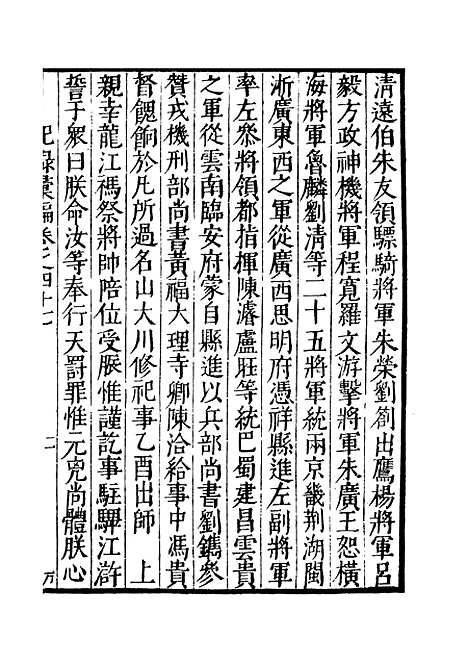 清遠伯朱友領驃騎將軍朱榮劉劄出鷹楊將軍呂
毅方政神機將軍程寬羅文游擊將軍朱廣王恕橫
海將軍魯麟劉清等二十五將軍統兩京畿荆湖閩
浙廣東西之軍從廣西思明府憑祥縣進左副將軍
率左叅將領都指揮陳濬盧旺等統巴蜀建昌雲貴
之軍從雲南臨安府蒙自縣進以兵部尚書劉鐫叅
贊戎機刑部尚書黃福大理寺卿陳洽給事中馮貴
督餽餉於凡所過名山大川修祀事乙酉出師　上
親幸龍江禡祭將帥陪位受脤惟謹訖事駐驆江滸
誓于衆曰朕命汝等奉行天罰罪惟元兇尚體朕心
紀錄彙編卷之四十七
二